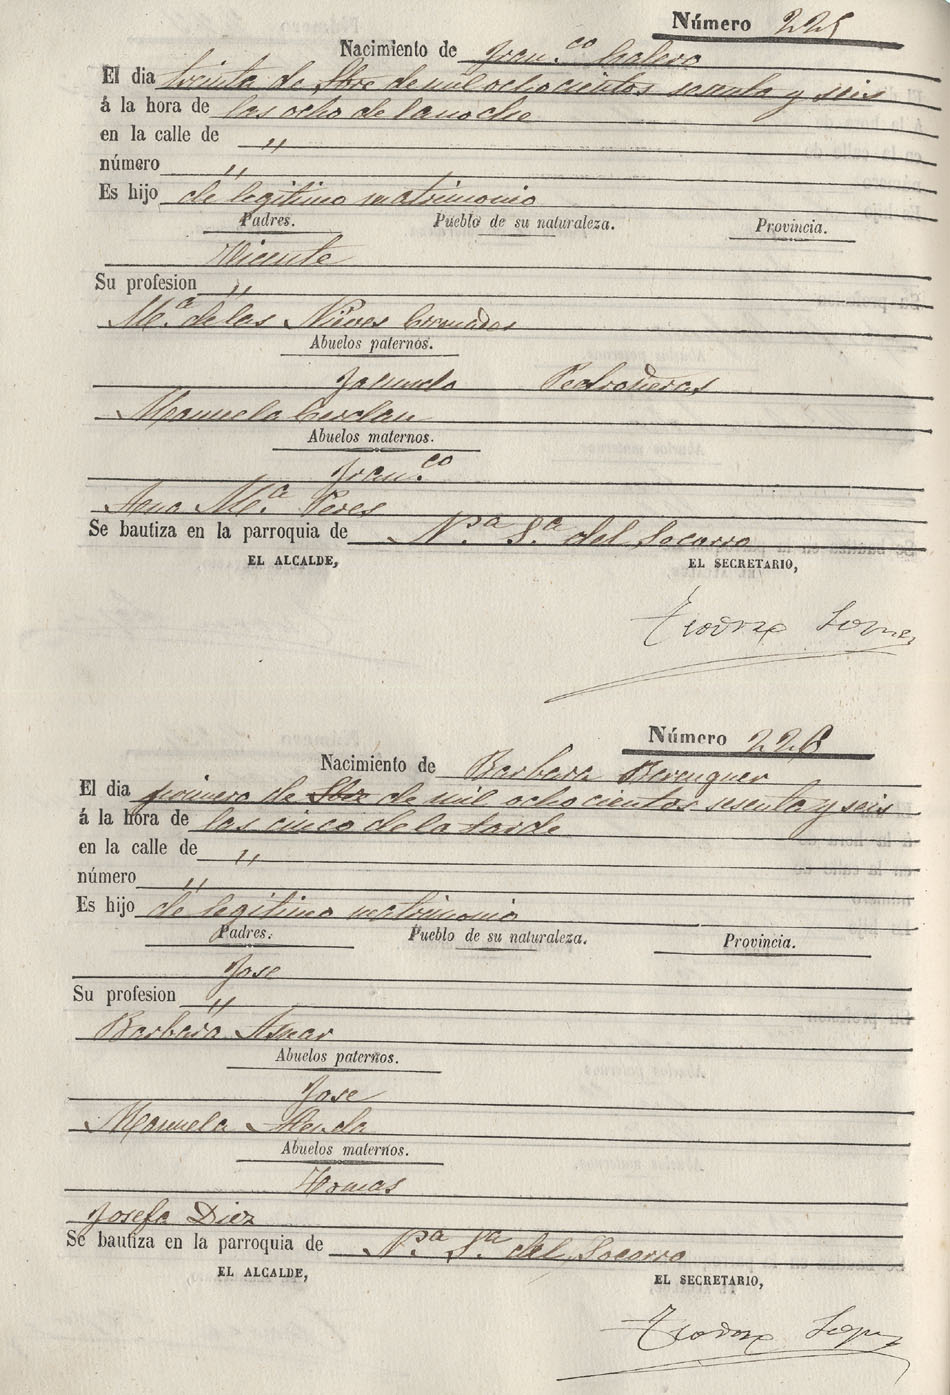 Número 225
Nacimiento de Fran.co Calero
El dia treinta de 8bre de mil ochocientos sesenta y seis
á la hora de las ocho de la noche
en la calle de "
número "
Es hijo de legitimo matrimonio
Padres. Pueblo de su naturaleza. Provincia.
Vicente
Su profesion "
M.a de las Nieves Granados
Abuelos paternos.
Facundo Pedroñeras
Manuela
Abuelos maternos.
Fran.co
Ana M.a Peres
Se bautiza en la parroquia de N.a S.a del Socorro
EL ALCALDE, EL SECRETARIO,
Teodoro Lopez
Número 226
Nacimiento de Barbara Berenguer
El dia primero de de mil ochocientos sesenta y seis
á la hora de las cinco de la tarde
en la calle de "
número "
Es hijo de legitimo matrimonio
Padres. Pueblo de su naturaleza. Provincia.
Jose
Su profesion "
Barbara Asnar
Abuelos paternos.
Jose
Manuela Alenda
Abuelos maternos.
Tomas
Josefa Diez
Se bautiza en la parroquia de N.a S.a del Socorro
EL ALCALDE, EL SECRETARIO,
Teodoro Lopez